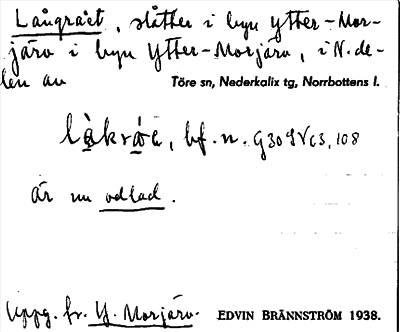 Långrået, slåtter i byn Ytter-Mor-
järv i byn Ytter-Morjärv, i N. de-
len av Töre sn, Nederkalix tg, Norrbottens l.
bf. n.
är nu odlad.
Uppg. fr. Y. Morjärv. EDVIN BRÄNNSTRÖM 1938.